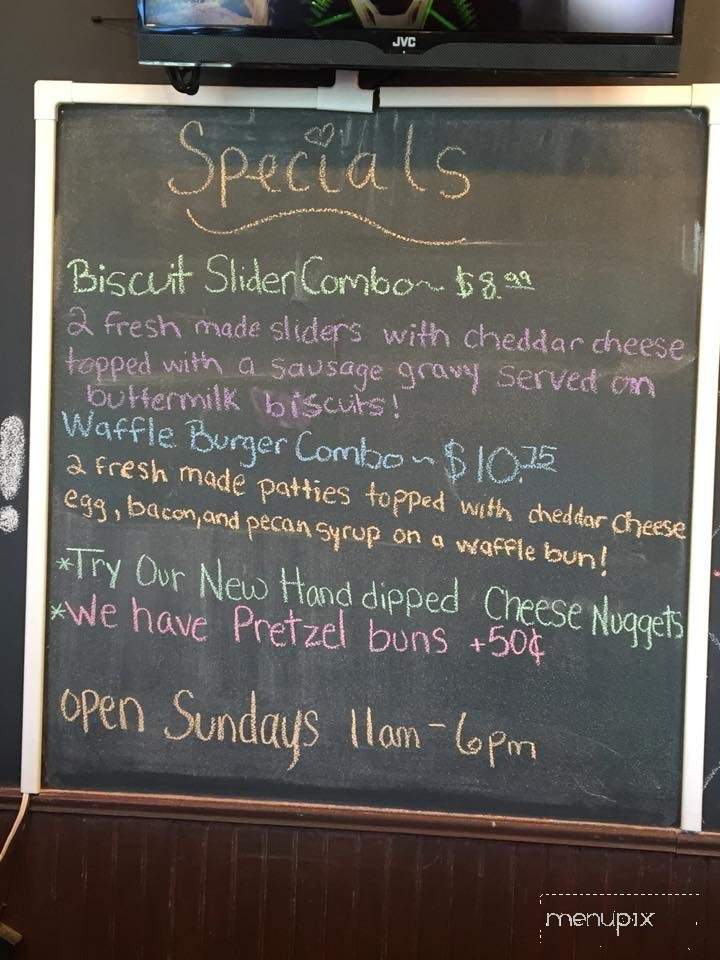 JVC
Specials
Biscuit Slider Combo~ $8.99
2 fresh made sliders with cheddar cheese
topped with a sausage gravy served on
buttermilk biscuits!
Waffle Burger Combo~ $10.75
2 fresh made patties topped with cheddar cheese
egg, bacon, and pecan syrup on a waffle bun!
*Try Our New Hand dipped Cheese Nuggets
*We have Pretzel buns +50¢
open Sundays 11am-6pm
menupix